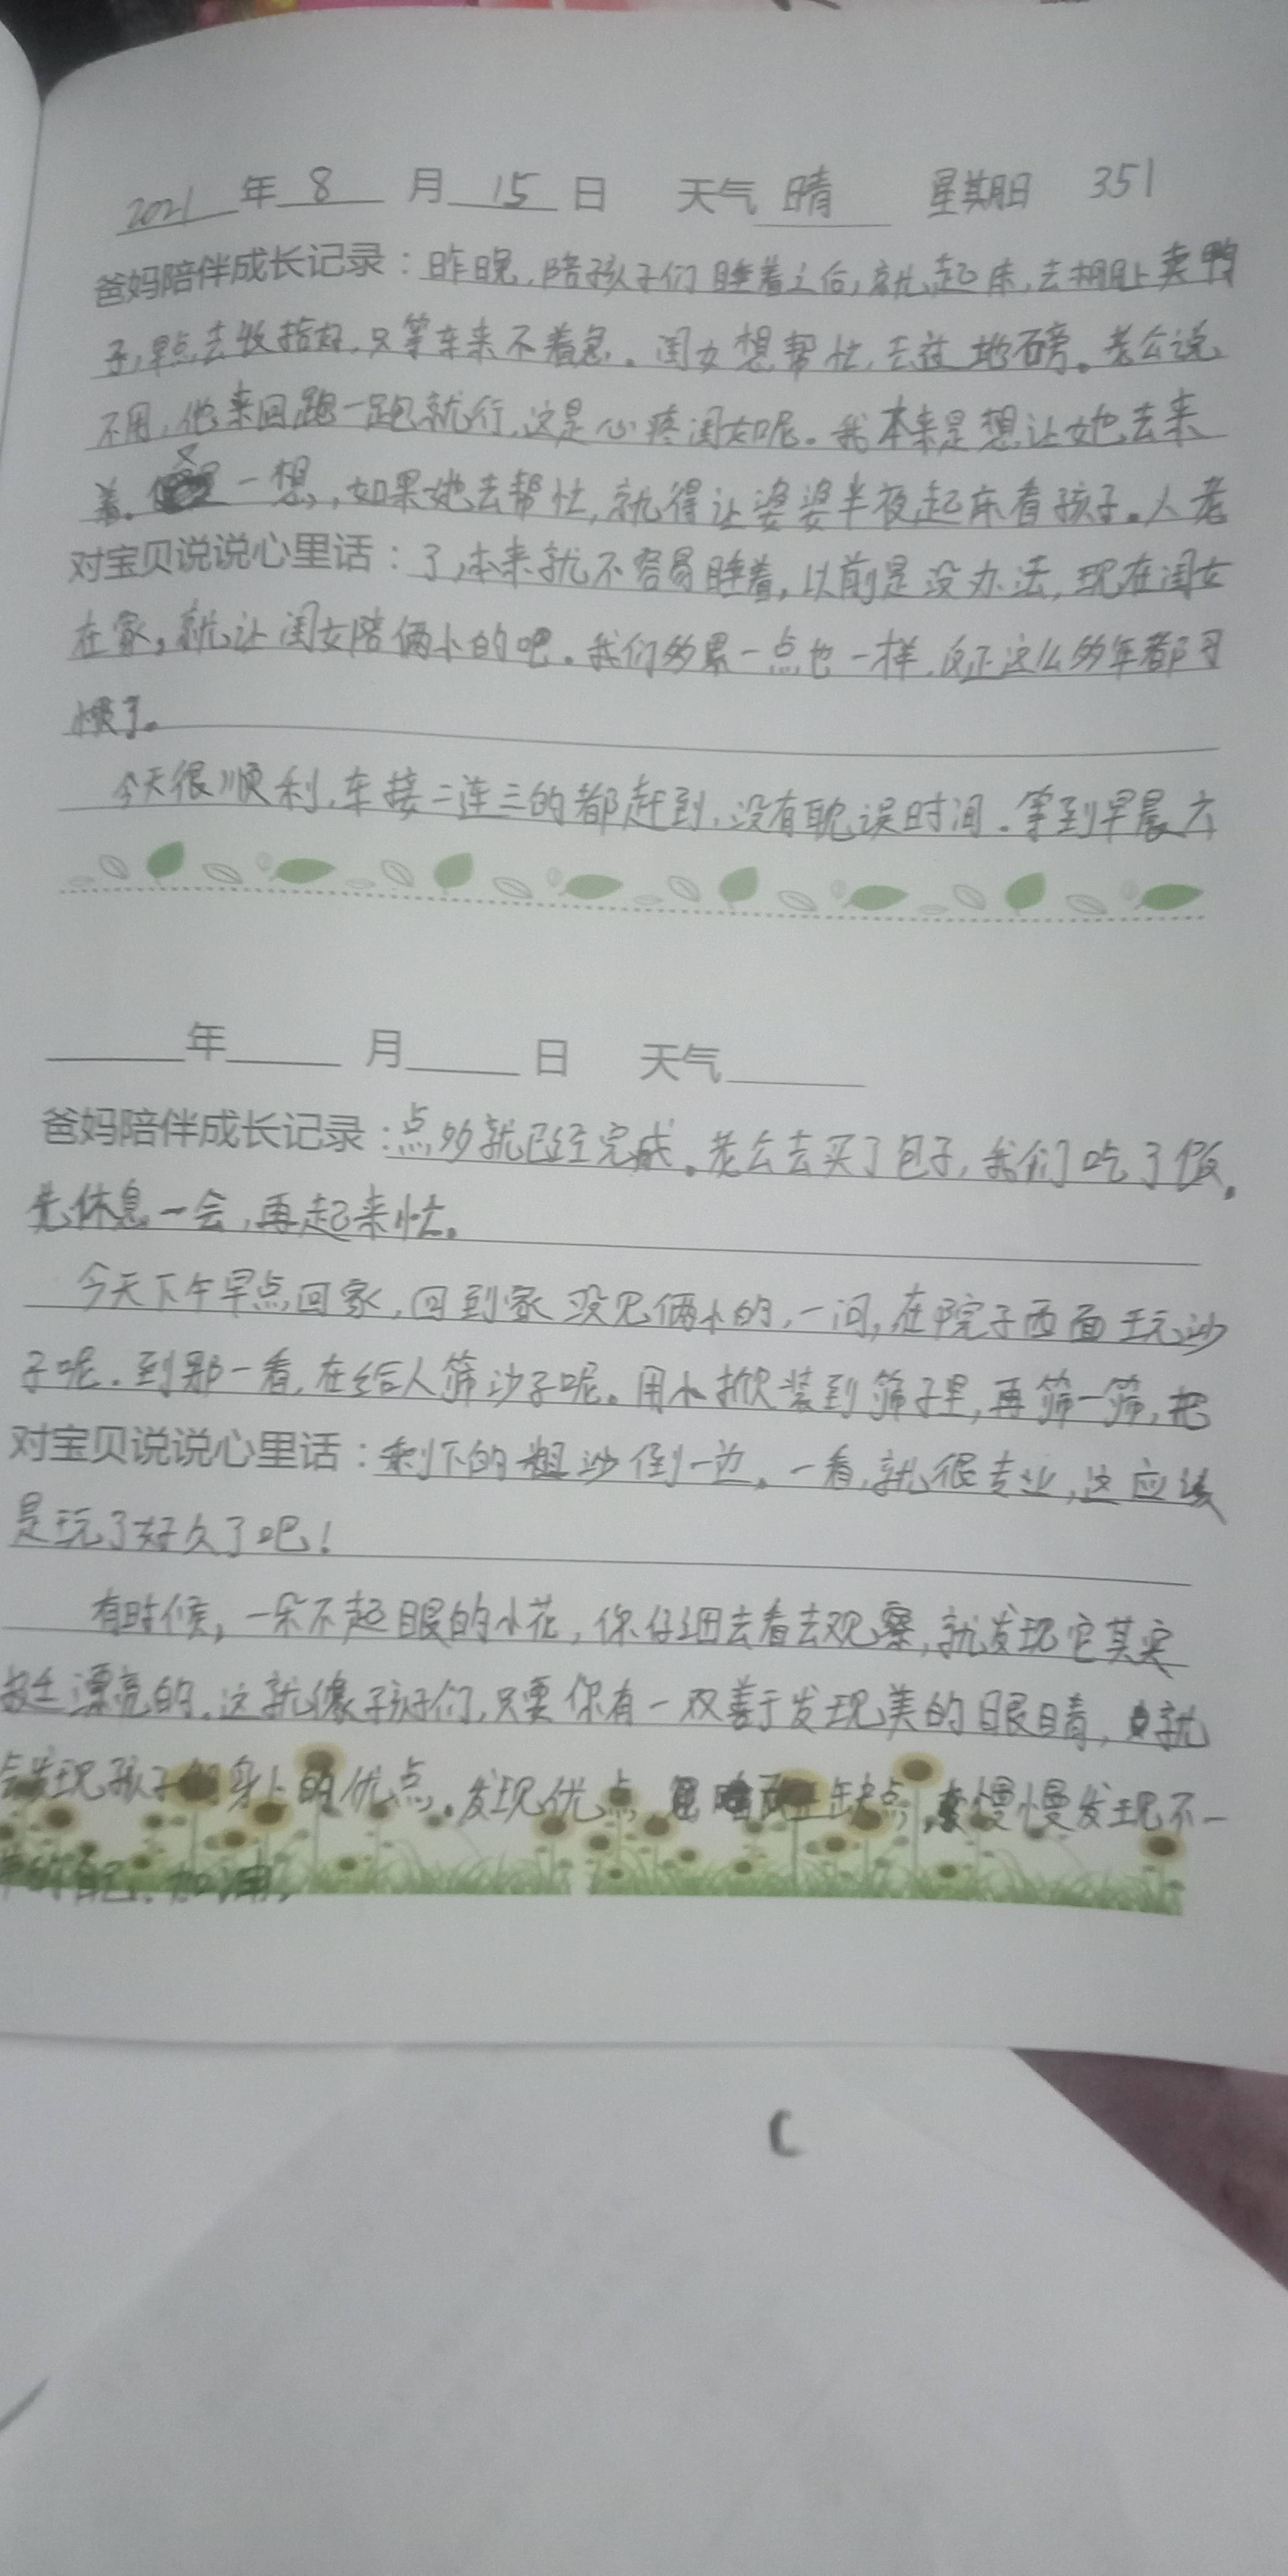 2021年8月15日 天气晴 星期日 351
爸妈陪伴成长记录：昨晚，陪孩子们睡着之后，就起床，去棚上卖鸭
子，早点去收拾好，只等车来不着急。闺女想帮忙，去过地磅。老公说
不用，他来回跑一跑就行，这是心疼闺女呢。我本来是想让她去来
着。又一想，如果她去帮忙，就得让婆婆半夜起床看孩子。人老
对宝贝说说心里话：了，本来就不容易睡着，以前是没办法，现在闺女
在家，就让闺女陪俩小的吧。我们多累一点也一样，反正这么多年都习
惯了。
今天很顺利，车接二连三的都赶到，没有耽误时间。等到早晨六
年 月 日 天气
爸妈陪伴成长记录：点多就已经完成。老公去买了包子，我们吃了饭。
先休息一会，再起来忙。
今天下午早点回家，回到家没见俩小的，一问，在院子西面玩沙
子呢。到那一看，在给人筛沙子呢。用小掀装到筛子里，再筛一筛，把
对宝贝说说心里话：剩下的粗沙倒一边。一看，就很专业，这应该
是玩了好久了吧！
有时候，一朵不起眼的小花，你仔细去看去观察，就发现它其实
挺漂亮的。这就像孩子们，只要你有一双善于发现美的眼睛，就
会发现孩子们身上的优点。发现优点，缺点，慢慢发现不一
的自己。加油。
C